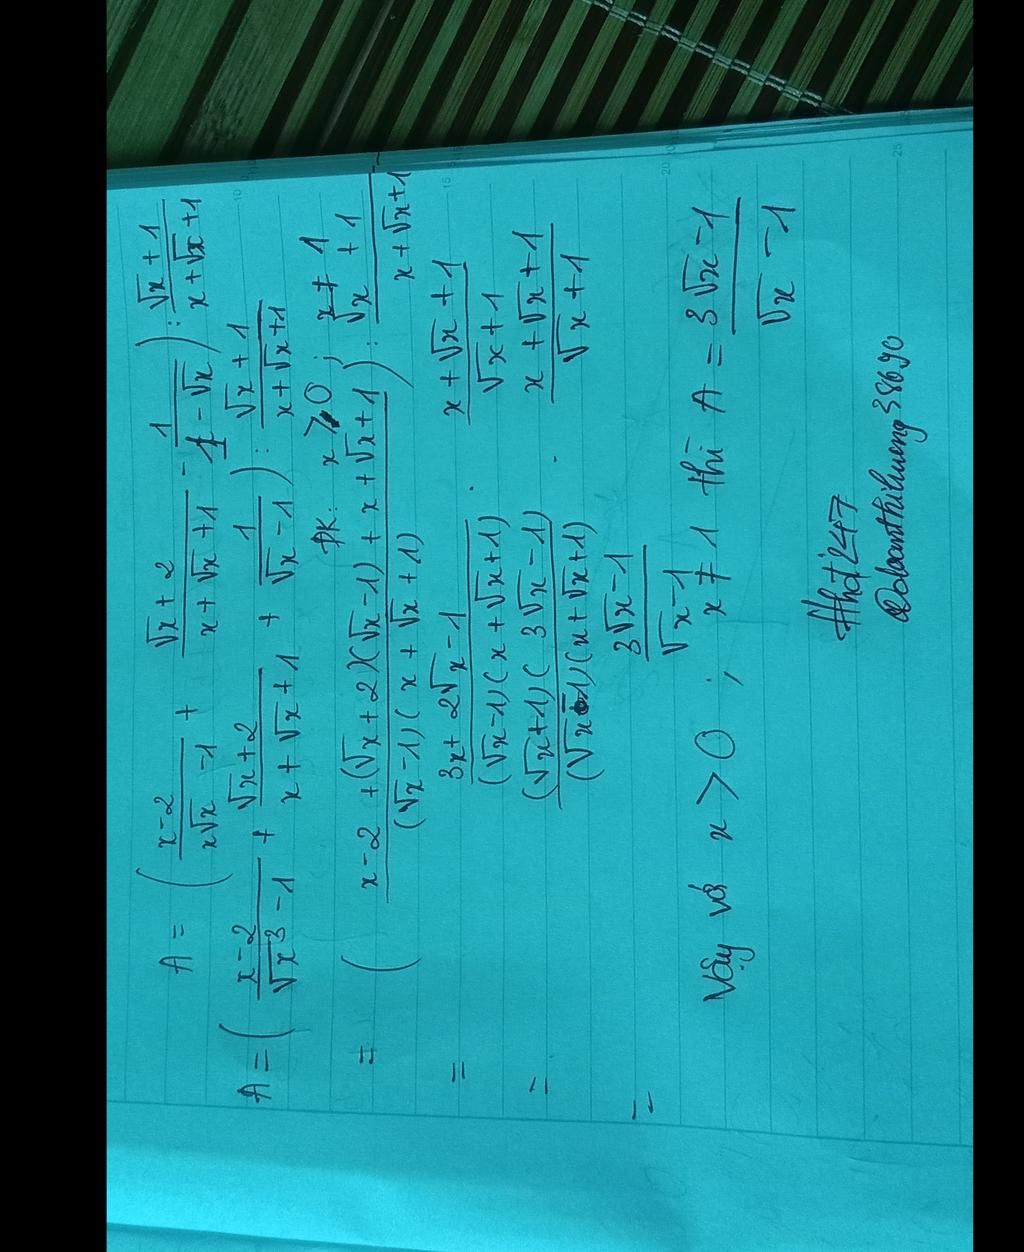 A = ( \frac{x-2}{x\sqrt{x}-1} + \frac{\sqrt{x}+2}{x+\sqrt{x}+1} - \frac{1}{1-\sqrt{x}} ) : \frac{\sqrt{x}+1}{x+\sqrt{x}+1}
A = ( \frac{x-2}{\sqrt{x^3}-1} + \frac{\sqrt{x}+2}{x+\sqrt{x}+1} + \frac{1}{\sqrt{x}-1} ) : \frac{\sqrt{x}+1}{x+\sqrt{x}+1}
ĐK: x ≥ 0 ; x ≠ 1
= ( \frac{x-2+(\sqrt{x}+2)(\sqrt{x}-1)+x+\sqrt{x}+1}{(\sqrt{x}-1)(x+\sqrt{x}+1)} ) : \frac{\sqrt{x}+1}{x+\sqrt{x}+1}
= \frac{3x+2\sqrt{x}-1}{(\sqrt{x}-1)(x+\sqrt{x}+1)} . \frac{x+\sqrt{x}+1}{\sqrt{x}+1}
= \frac{(\sqrt{x}+1)(3\sqrt{x}-1)}{(\sqrt{x}-1)(x+\sqrt{x}+1)} . \frac{x+\sqrt{x}+1}{\sqrt{x}+1}
= \frac{3\sqrt{x}-1}{\sqrt{x}-1}
Vậy vớ x > 0 ; x ≠ 1 thì A = \frac{3\sqrt{x}-1}{\sqrt{x}-1}
#hd247
@doanthihuong38690